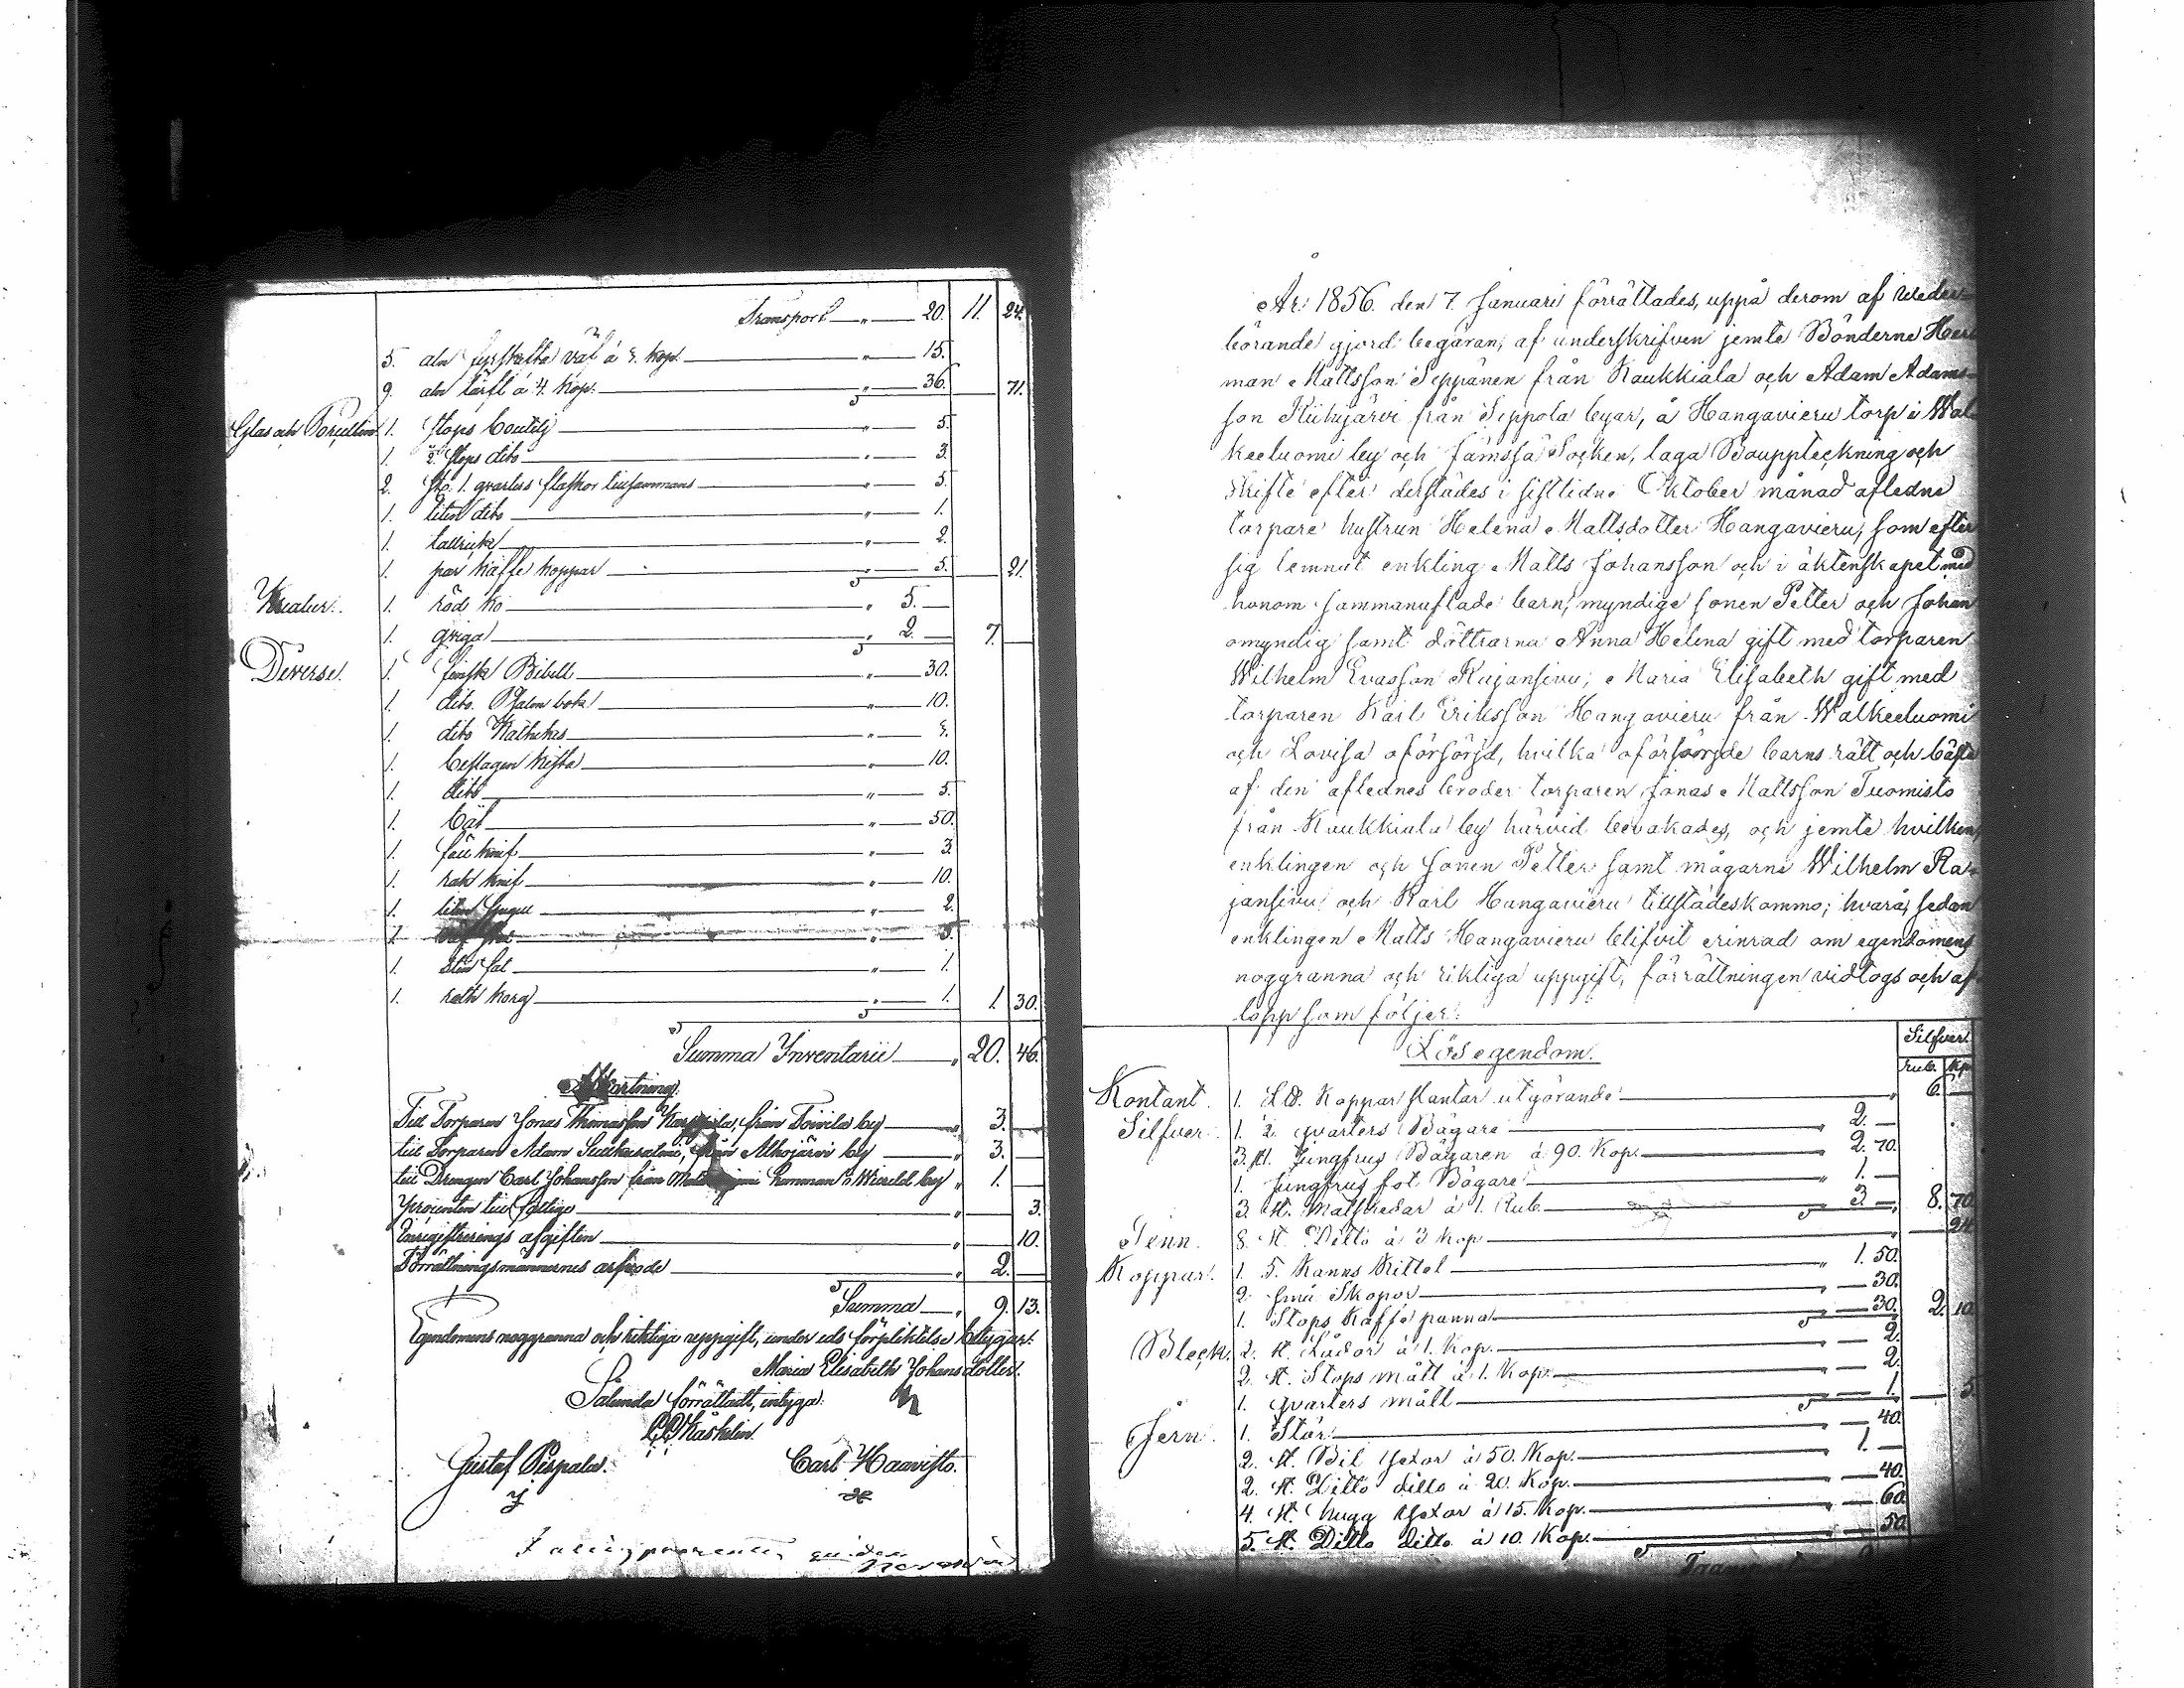 Transport — " — 20. 11. 24.
5. aln fyrskefta väf à 3. kop. — " — 15.
9. aln lärft à 4 kop. — " — 36. 71.
Glas och Porcellin 1. stops boutelj — " — 5.
1. ½ stops dito — " — 3.
2. st. 1. qvarters flaskor tillsammans — " — 5.
1. liten dito — " — 1.
1. tallrick — " — 2.
1. par kaffe koppar — " — 5. 21.
Kreatur. 1. röd ko — " 5. —
1. qviga — " 2. — 7. —
Diverse. 1. finsk Bibell — " — 30.
1. dito. Psalm bok — " — 10.
1. dito Kathekes — " — 3.
1. beslagen kista — " — 10.
1. dito — " — 5.
1. båt — " — 50.
1. fäll knif — " — 3.
1. rak knif — " — 10.
1. liten — " — 2.
1. — " — 5.
1. sten fat — " — 1.
1. korg — " — 1. 1. 30.
Summa Inventarii — " 20. 46.
Afkortning.
Till Torparen Jonas Thomasson från Toivila by — " 3. —
till Torparen Adam från Alhojärvi by — " 3. —
till Drengen Carl Johansson från hemman i by " 1. —
Procenten till fattige — " — 3.
Inregistrerings afgiften — " — 10.
Förrättningsmännernes arfvode — " 2. —
Summa — " 9. 13.
Egendomens noggranna och riktiga uppgift, under eds förpliktelse betygar:
Maria Elisabeth Johansdotter.
Sålunda förrättadt, intyga:
Gustaf Pispala. Carl Haavisto.
År 1856. den 7. Januari förrättades, uppå derom af veder-
börande gjord begäran, af underskrifven jemte Bönderne Her-
man Mattsson Seppänen från Kaukkiala och Adam Adams-
son Kiihijärvi från Seppola byar, å Hangavieru torp i Wal-
keeluomi by och Jämssä Socken, laga Bouppteckning och
skifte efter derstädes i sistlidne Oktober månad afledne
torpare hustrun Helena Mattsdotter Hangavieru, som efter
sig lemnat enkling Matts Johansson och i äktenskapet med
honom sammanaflade barn, myndige sonen Petter och Johan
omyndig samt döttrarna Anna Helena gift med torparen
Wilhelm Evasson Rajansivu, Maria Elisabeth gift med
torparen Karl Eriksson Hangavieru från Walkeeluomi
och Lovisa oförsörjd, hvilka oförsörgde barns rätt och bästa
af den aflednes broder torparen Jonas Mattsson Tuomisto
från Kaukkiala by härvid bevakades, och jemte hvilken,
enklingen och sonen Petter samt mågarne Wilhelm Ra-
jansivu och Karl Hangavieru tillstädeskommo; hvarå, sedan
enklingen Matts Hangavieru blifvit erinrad om egendomens
noggranna och riktiga uppgift, förrättningen vidtogs och af-
lopp som följer:
Lös egendom. Silfver
rub. kp
Kontant. 1. L℔. Koppar slantar utgörande — " 6. —
Silfver. 1. 2. qvarters Bägare — " 2. —
3. st. Jungfrus Bägaren à 90. Kop. — " 2. 70.
1. Jungfrus fot Bägare — " 1. —
3. st. Matskedar à 1. Rub. — " 3 — 8. 70
Tenn. 8. st. Ditto à 3 kop — 24
Koppar. 1. 5. Kanns Kittel — " 1. 50.
2. små Skopor — " — 30.
1. Stops Kaffe panna — " — 30. 2. 10
Bleck. 2. st. Lådor à 1. Kop. — " — 2.
2. st. Stops mått à 1. Kop. — " — 2.
1. qvarters mått — " — 1. — 5
Jern. 1. Stör — " — 40.
2. st. Bil Yxor à 50. Kop. — " 1. —
2. st. Ditto ditto à 20. Kop. — " — 40.
4. st. hugg Yxor à 15. Kop. — " — 60
5. st. Ditto ditto à 10. Kop. — " — 50